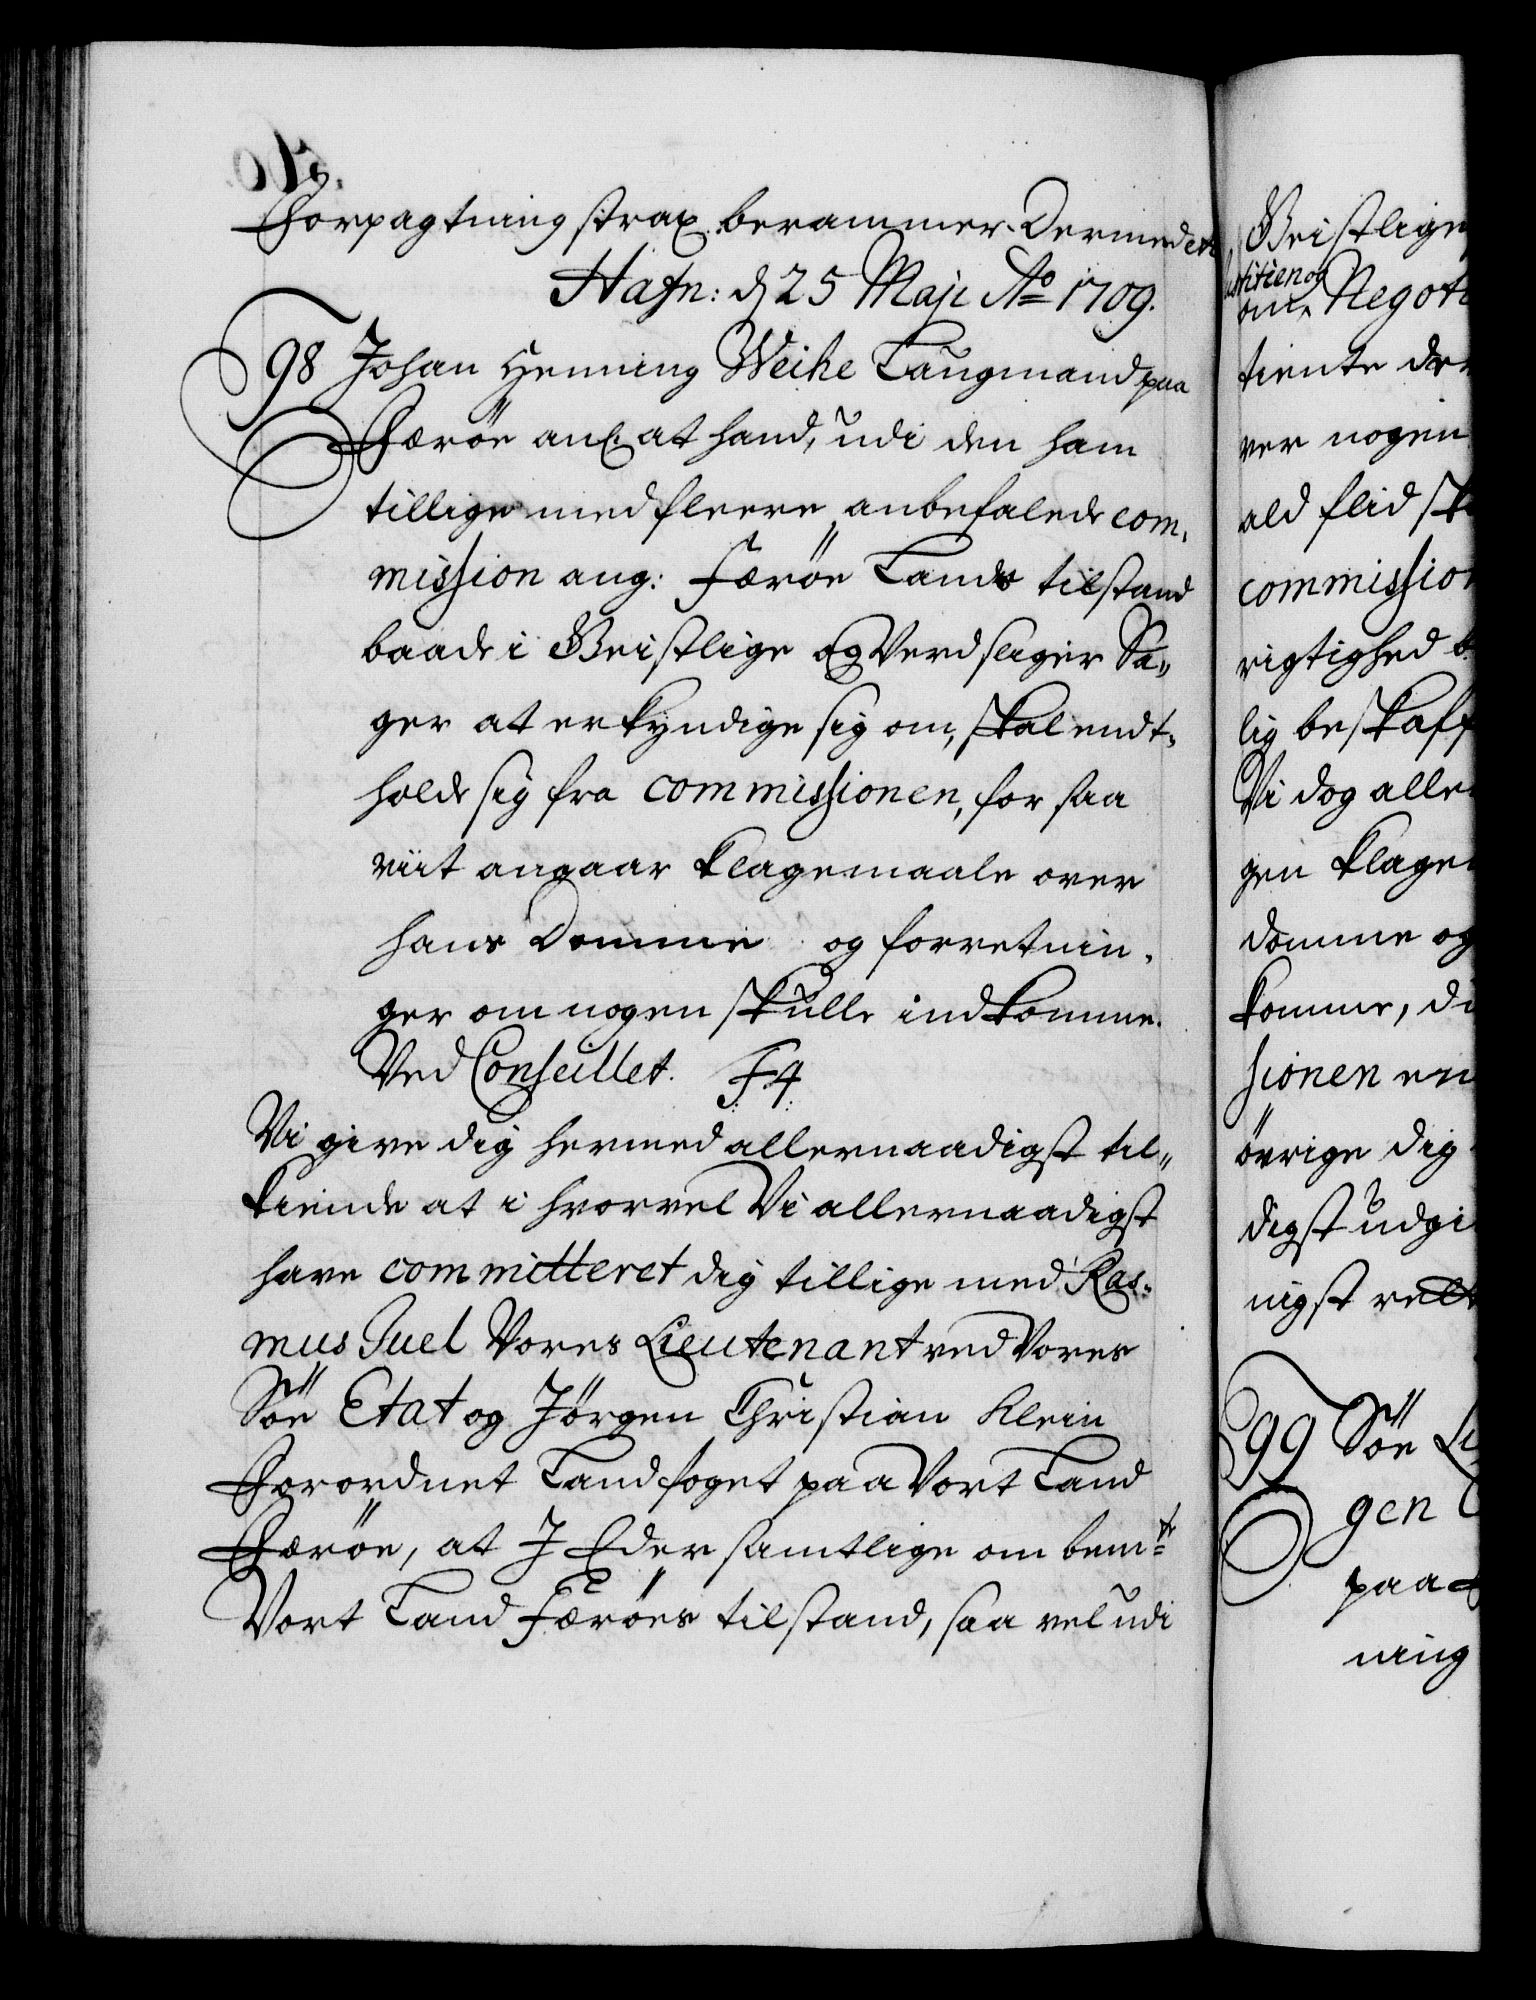 Forpagtning strax berammer. Dermed etc
Hafn: d 25 Maji Ao 1709.
98 Johan Henning Weihe Laugmand paa
Færöe anl. at hand, udi den ham
tillige med fleere anbefalede com,
mission ang: Færöe Lands tilstand
baade i Geistlige og Verdslager Sa„
ger at erkyndige sig om, skal endt,
holde sig fra commissionen, for saa
viit angaar Klagemaale over
hans Domme og forretnin,
ger om nogen skulle indkomme.
Ved Conseillet. F4
Vi give dig hermed allernaadigst til„
kiende at i hvorvel Vi allernaadigst
have committeret dig tillige med Ras,
mus Juel Vores Lieutenant ved Vores
Söe Etat og Jörgen Christian Klein
Forordnet Landfoget paa Vort Land
Færöe, at I Eder samtlige om bemte
Vort Land Færöes tilstand, saa vel udi
Geistlige
justitien og
om Negoti
tiente der
ver nogen
ald flid sk
commission
rigtighed
lig beskaff
Vi dog aller
gen Klage
domme og
komme, di
sionen en
övrige dig
digst udgi
nigst
99 Söe Li
gen C
paa F
ning